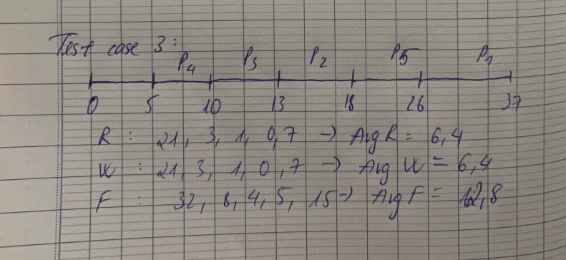 Test case 3:
P4 P3 P2 P5 P1
0 5 10 13 18 26 37
R : 21, 3, 1, 0, 7 → Avg R = 6,4
W : 21, 3, 1, 0, 7 → Avg W = 6,4
F : 32, 8, 4, 5, 15 → Avg F = 12,8